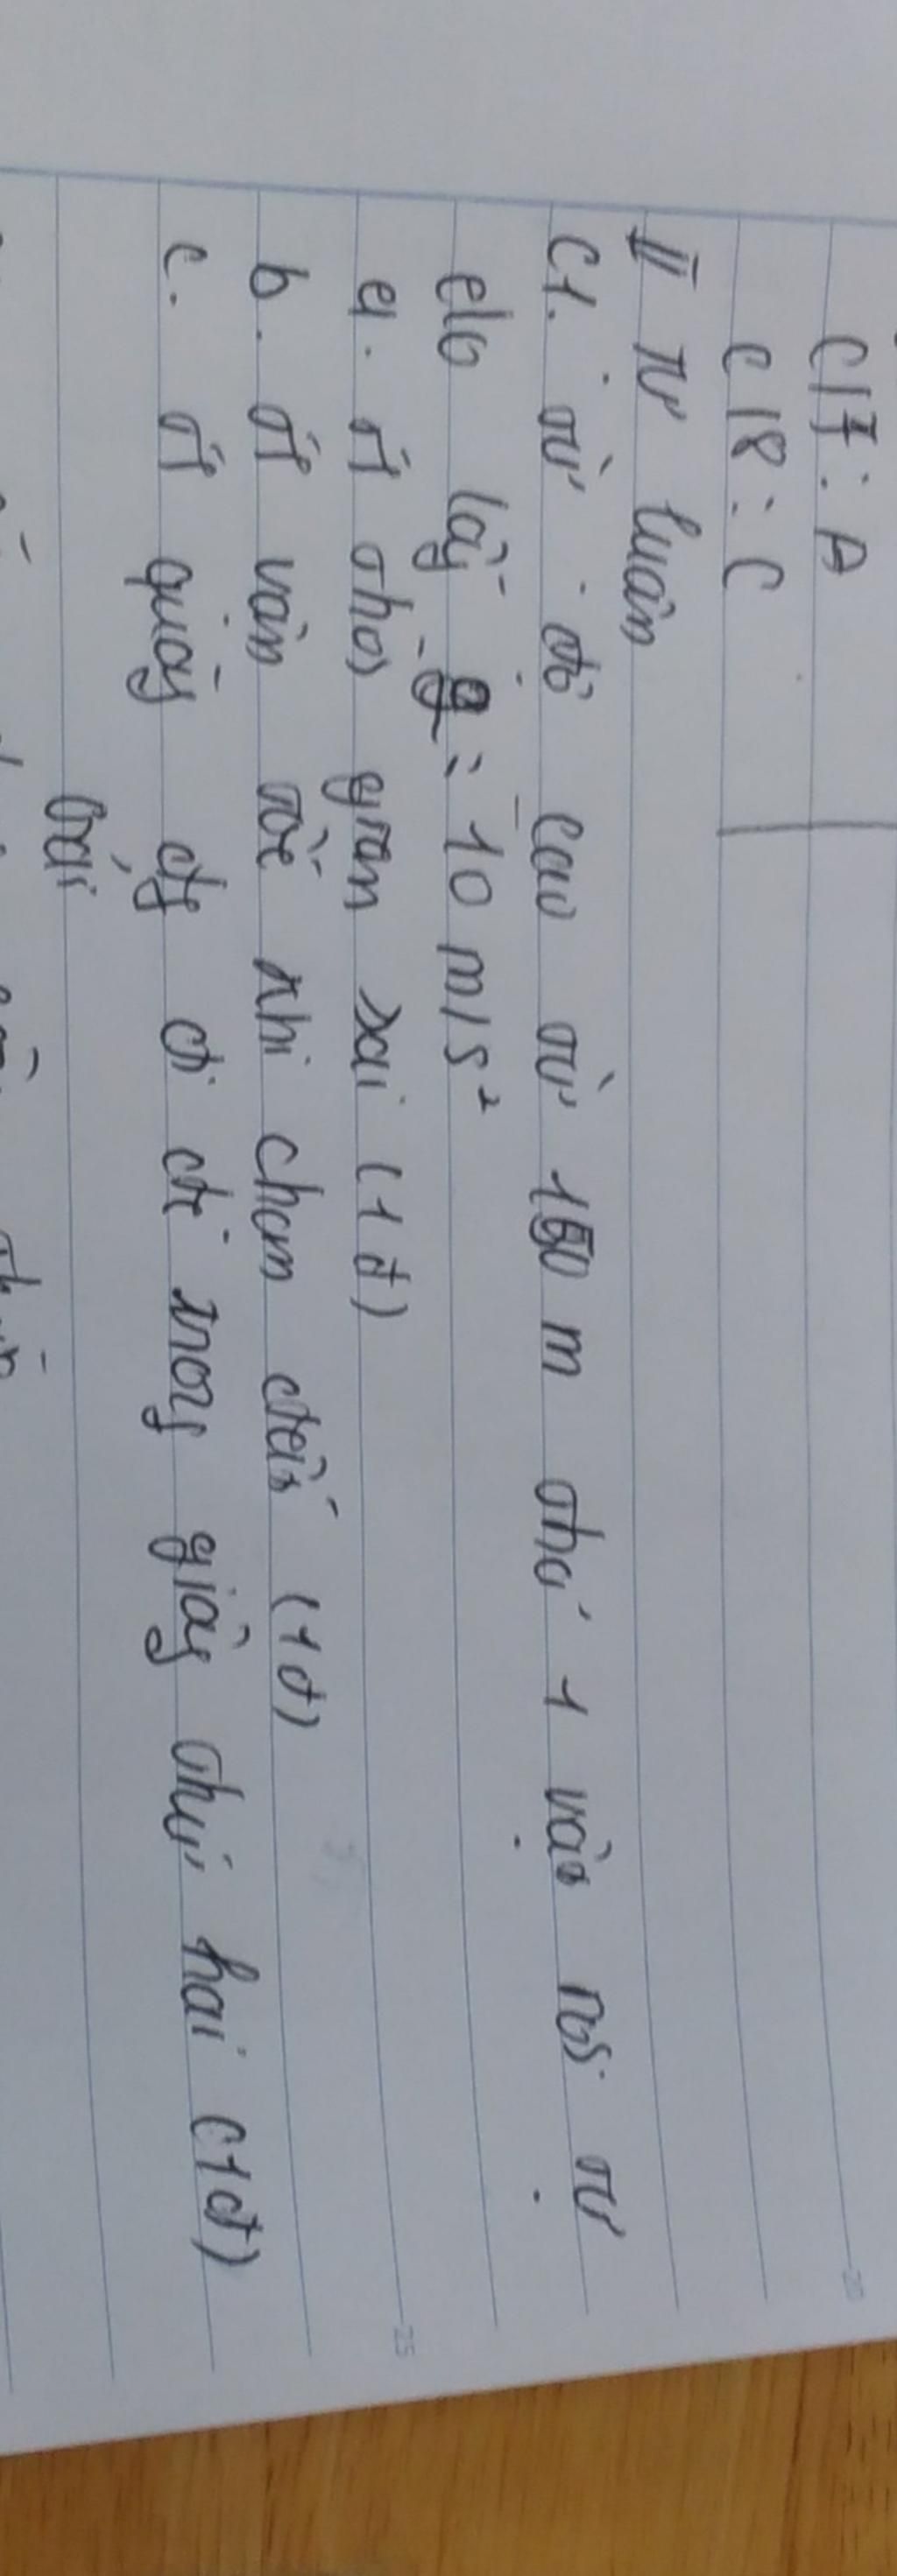 C17: A
C18: C
II Tự luận
C1. từ độ cao từ 150 m thả 1 vật rơi tự
do lấy g = 10 m/s²
a. tí thời gian rơi (1đ)
b. tí vận tốc khi chạm đất (1đ)
c. tí quãg đg đi đc trog giây thứ hai (1đ)
bài